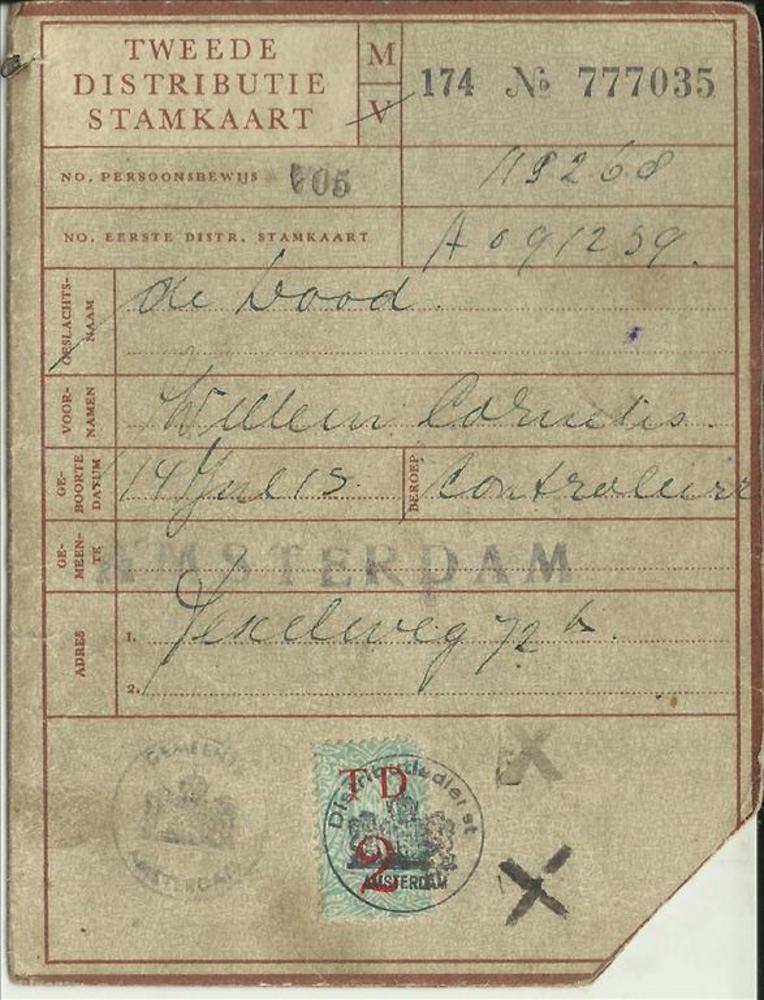 TWEEDE
DISTRIBUTIE
STAMKAART
M
V
174 № 777035
NO. PERSOONSBEWIJS 05
NO. EERSTE DISTR. STAMKAART A 091239.
GESLACHTS-
NAAM
de
VOOR-
NAMEN
Willem Cornelis.
GE-
BOORTE
DATUM
14
BEROEP
Controleur
GE-
MEEN-
TE
AMSTERDAM
ADRES
1. Texelweg 72
2.
GEMEENTE
AMSTERDAM
TD
2
Distributiedienst
AMSTERDAM
X
X